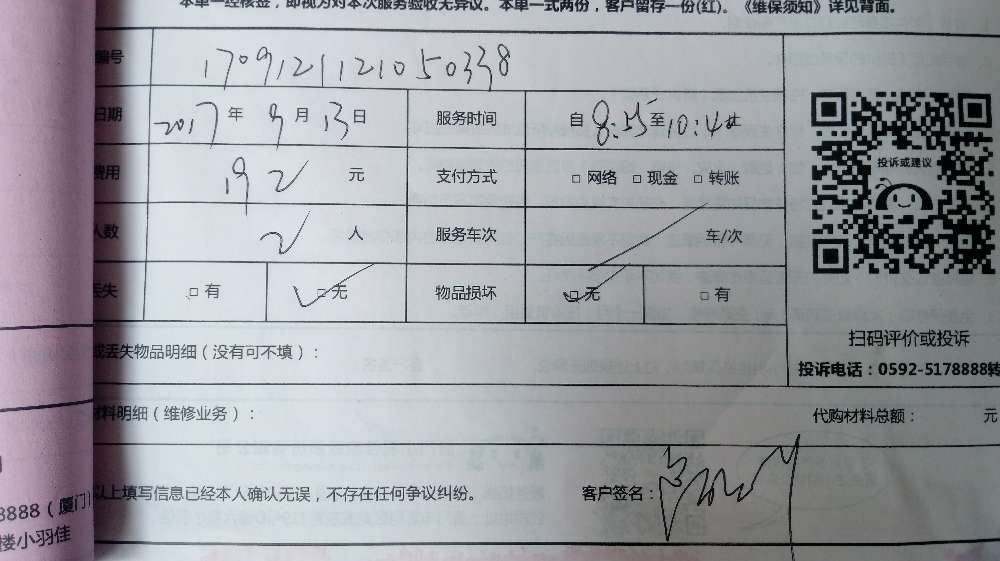 本单一经核签，即视为对本次服务验收无异议。本单一式两份，客户留存一份(红)。《维保须知》详见背面。
编号 170912112105033​8
日期 2017年9月13日 服务时间 自8:55至10:4
费用 192元 支付方式 □网络 □现金 □转账
投诉或建议
人数 2人 服务车次 车/次
丢失 □有 □无 物品损坏 □无 □有
扫码评价或投诉
或丢失物品明细（没有可不填）：
投诉电话：0592-5178888转
材料明细（维修业务）： 代购材料总额： 元
以上填写信息已经本人确认无误，不存在任何争议纠纷。 客户签名：
8888（厦门）
楼小羽佳